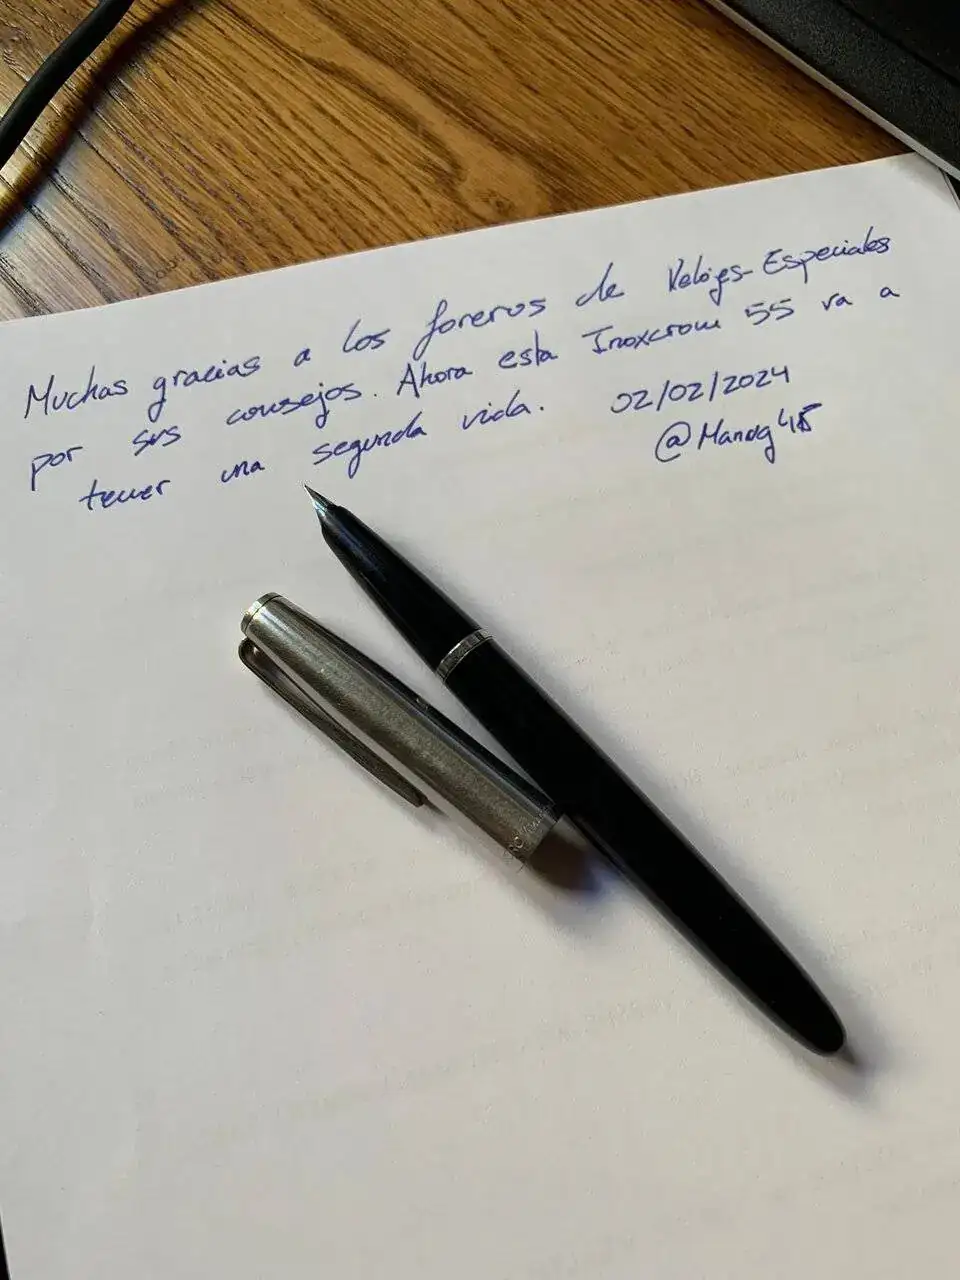 Muchas gracias a los foreros de Relojes-Especiales
por sus consejos. Ahora esta Inoxcrom 55 va a
tener una segunda vida. 02/02/2024
@Manog45